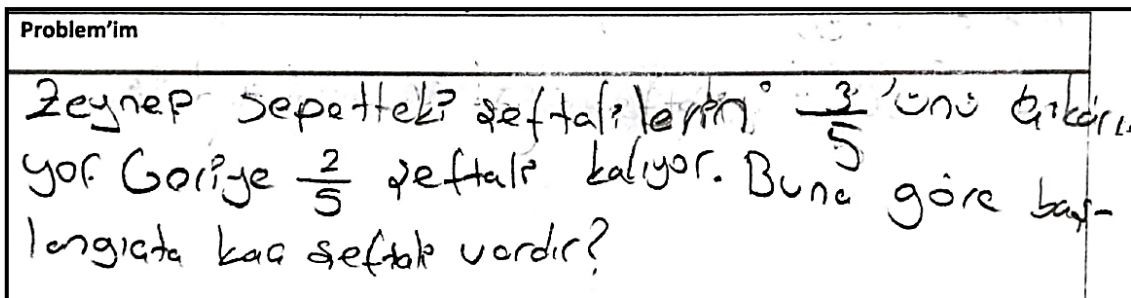 Problem'im
Zeynep sepetteki şeftalilerin 3/5'ünü çıkarı
yor. Geriye 2/5 şeftali kalıyor. Buna göre baş-
langıçta kaç şeftali vardır?